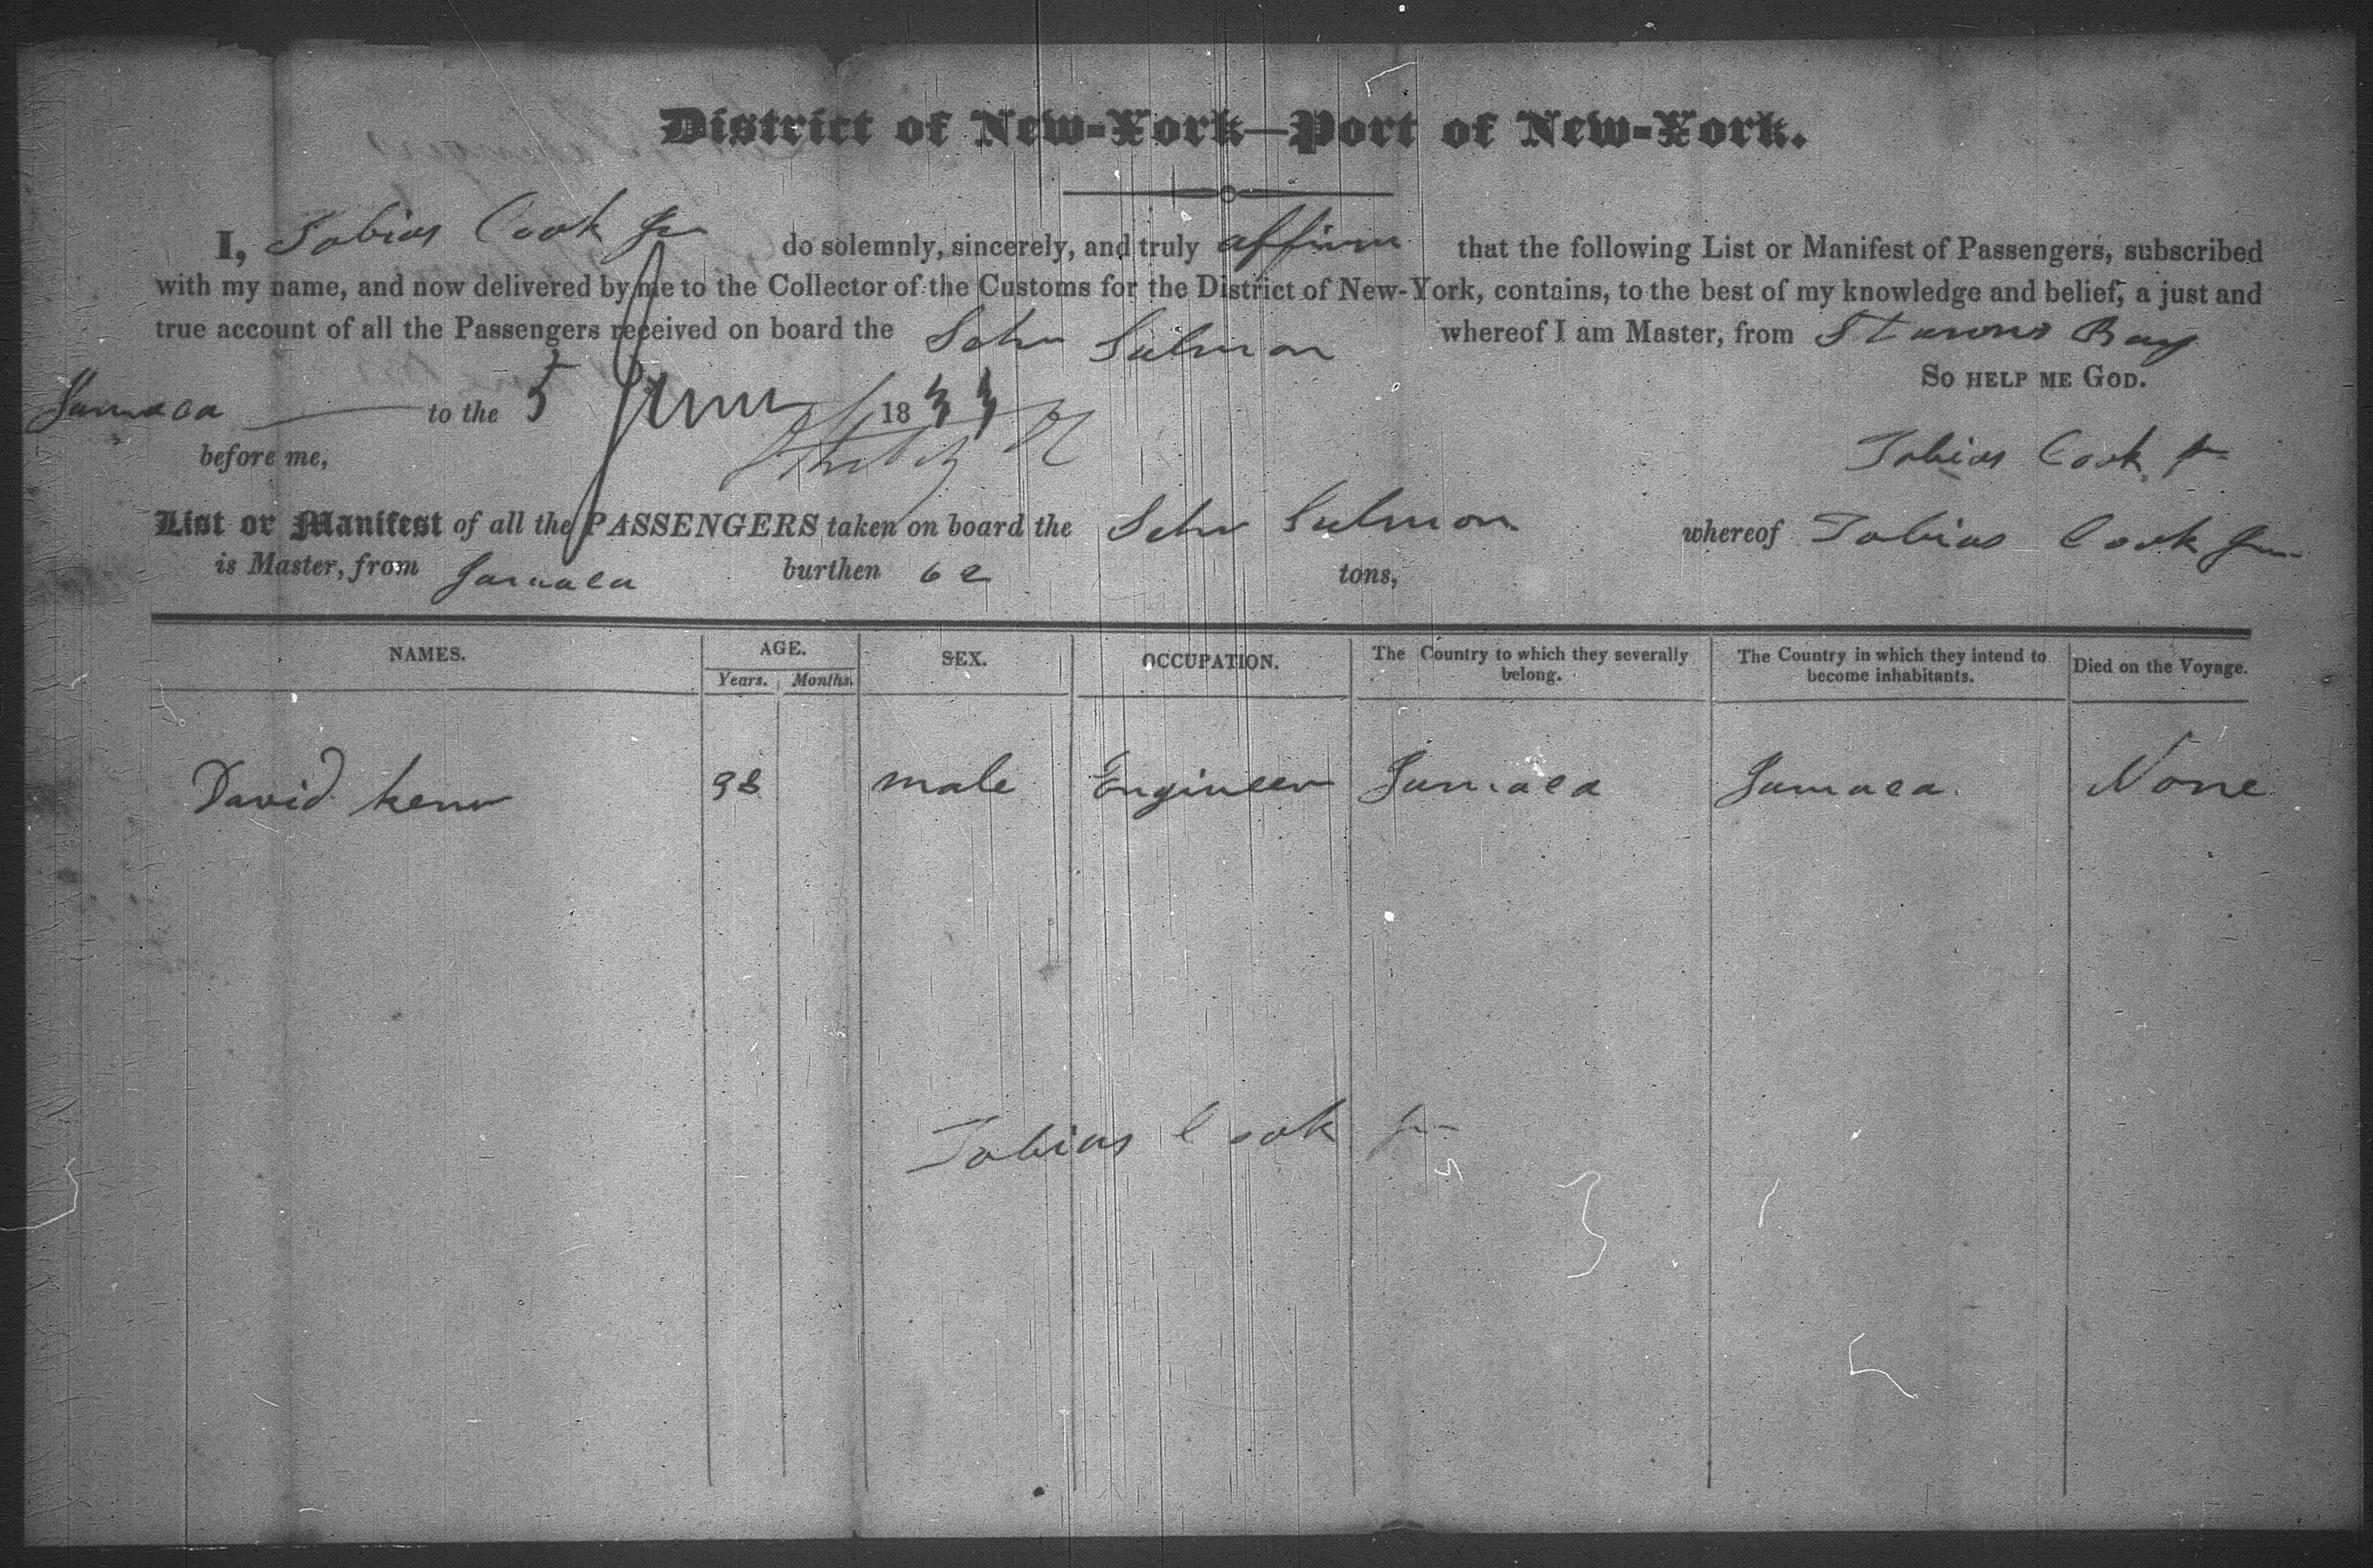 District of New-York—Port of New-York.
I, Tobias Cook Jr do solemnly, sincerely, and truly affirm that the following List or Manifest of Passengers, subscribed
with my name, and now delivered by me to the Collector of the Customs for the District of New-York, contains, to the best of my knowledge and belief, a just and
true account of all the Passengers received on board the Schr Salmon whereof I am Master, from Bay
So HELP ME GOD.
Jamaca to the 5 June 1833
before me,
Tobias Cook Jr
List or Manifest of all the PASSENGERS taken on board the Schr Salmon whereof Tobias Cook Jun
is Master, from Jamaca burthen 62 tons,
NAMES. AGE. SEX. OCCUPATION. The Country to which they severally belong. The Country in which they intend to become inhabitants. Died on the Voyage.
Years. Months.
David kerr 38 male Engineer Jamaca Jamaca. None
Tobias Cook Jr